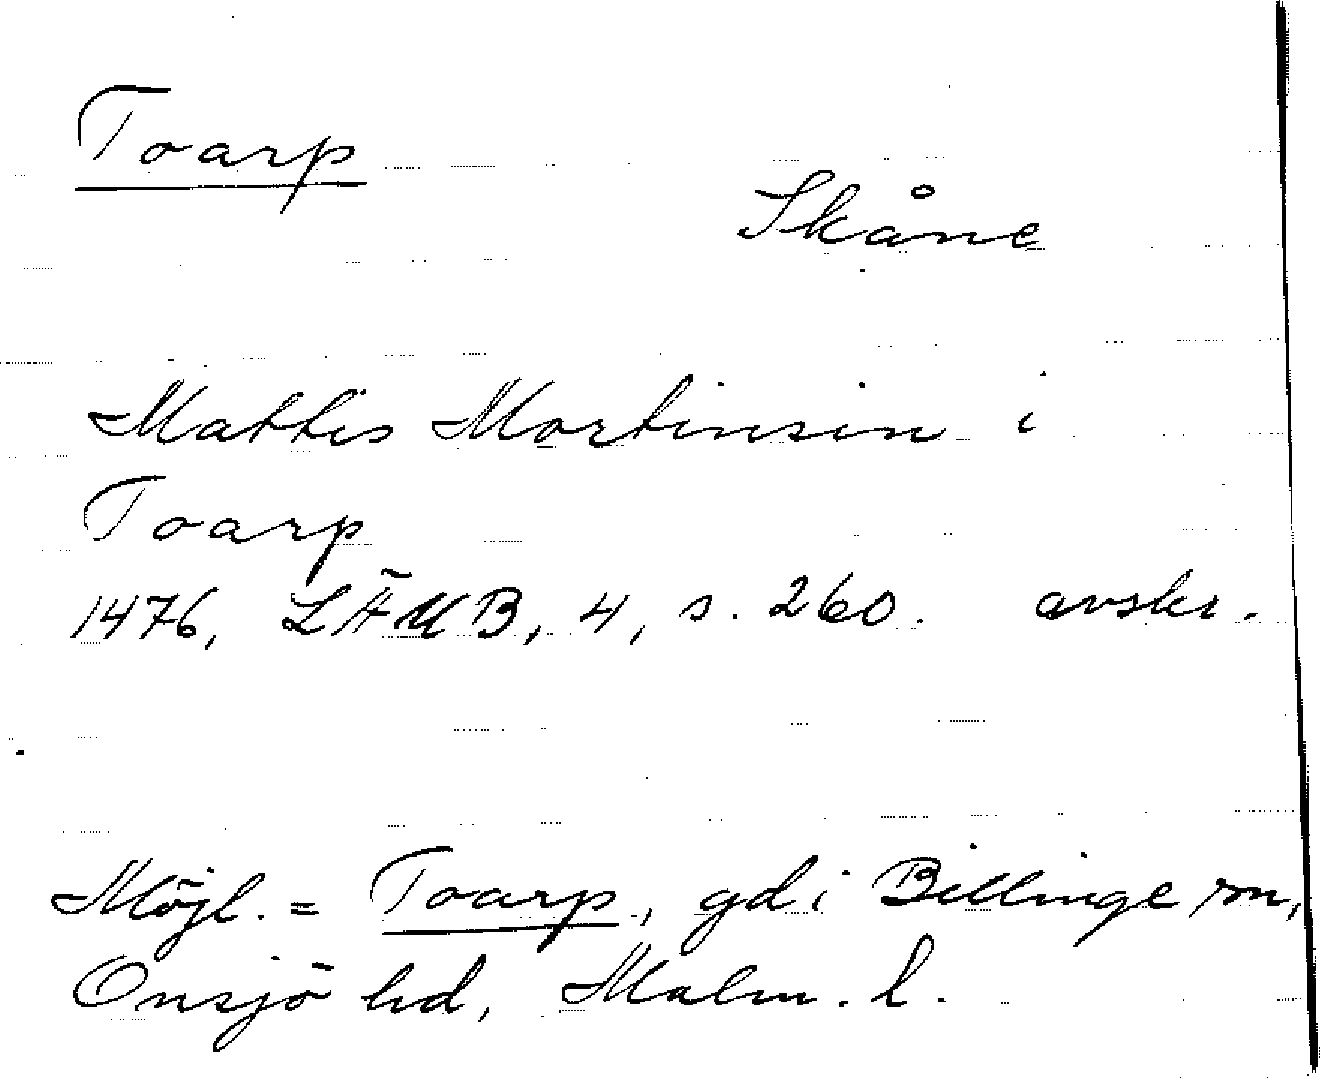 Toarp
Skåne
Mattis Mortinsin i
Toarp
1476, LÄUB, 4, s. 260. avskr.
Möjl. = Toarp, gd i Billinge sn,
Onsjö hd, Malm. l.